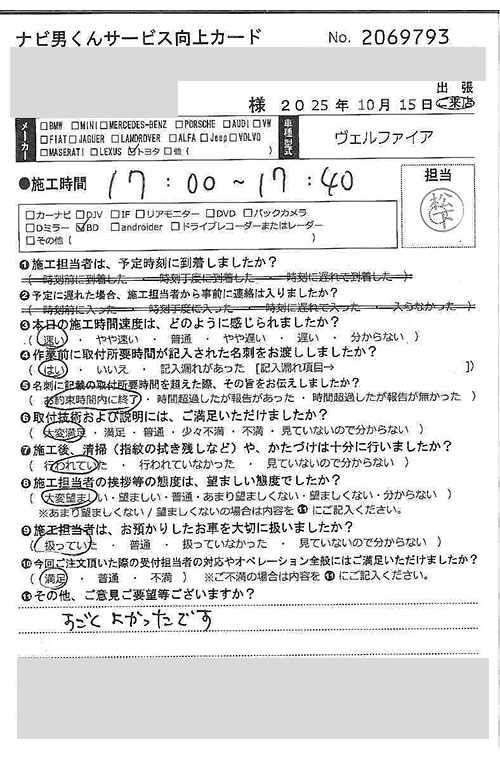 ナビ男くんサービス向上カード No. 2069793
出張
様 2025年10月15日 ご来店
メーカー □BMW □MINI □MERCEDES-BENZ □PORSCHE □AUDI □VW
□FIAT □JAGUER □LANDROVER □ALFA □Jeep □VOLVO
□MASERATI □LEXUS ☑トヨタ □他( )
車種型式 ヴェルファイア
●施工時間 17:00~17:40
担当
松下
□カーナビ □DJV □IF □リアモニター □DVD □バックカメラ
□Dミラー ☑BD □androider □ドライブレコーダーまたはレーダー
□その他( )
❶施工担当者は、予定時刻に到着しましたか?
(時刻前に到着した ・ 時刻丁度に到着した ・ 時刻に遅れて到着した)
❷予定に遅れた場合、施工担当者から事前に連絡は入りましたか?
(時刻前に入った ・ 時刻丁度に入った ・ 時刻に遅れて入った ・ 入らなかった)
❸本日の施工時間速度は、どのように感じられましたか?
(速い ・ やや速い ・ 普通 ・ やや遅い ・ 遅い ・ 分からない)
❹作業前に取付所要時間が記入された名刺をお渡ししましたか?
(はい ・ いいえ ・ 記入漏れがあった [記入漏れ項目→ ])
❺名刺に記載の取付所要時間を超えた際、その旨をお伝えしましたか?
(お約束時間内に終了・時間超過したが報告があった・時間超過したが報告が無かった)
❻取付技術および説明には、ご満足いただけましたか?
(大変満足・満足・普通・少々不満・不満・見ていないので分からない)
❼施工後、清掃(指紋の拭き残しなど)や、かたづけは十分に行いましたか?
(行われていた ・ 行われていなかった ・ 見ていないので分からない)
❽施工担当者の挨拶等の態度は、望ましい態度でしたか?
(大変望ましい・望ましい・普通・あまり望ましくない・望ましくない・分からない)
※あまり望ましくない/望ましくないの場合は内容を⓫にご記入ください。
❾施工担当者は、お預かりしたお車を大切に扱いましたか?
(扱っていた ・ 普通 ・ 扱っていなかった ・ 見ていないので分からない)
❿今回ご注文頂いた際の受付担当者の対応やオペレーション全般にはご満足いただけましたか?
(満足 ・ 普通 ・ 不満) ※ご不満の場合は内容を⓫にご記入ください。
⓫その他、ご意見ご要望等ございますか?
すごくよかったです